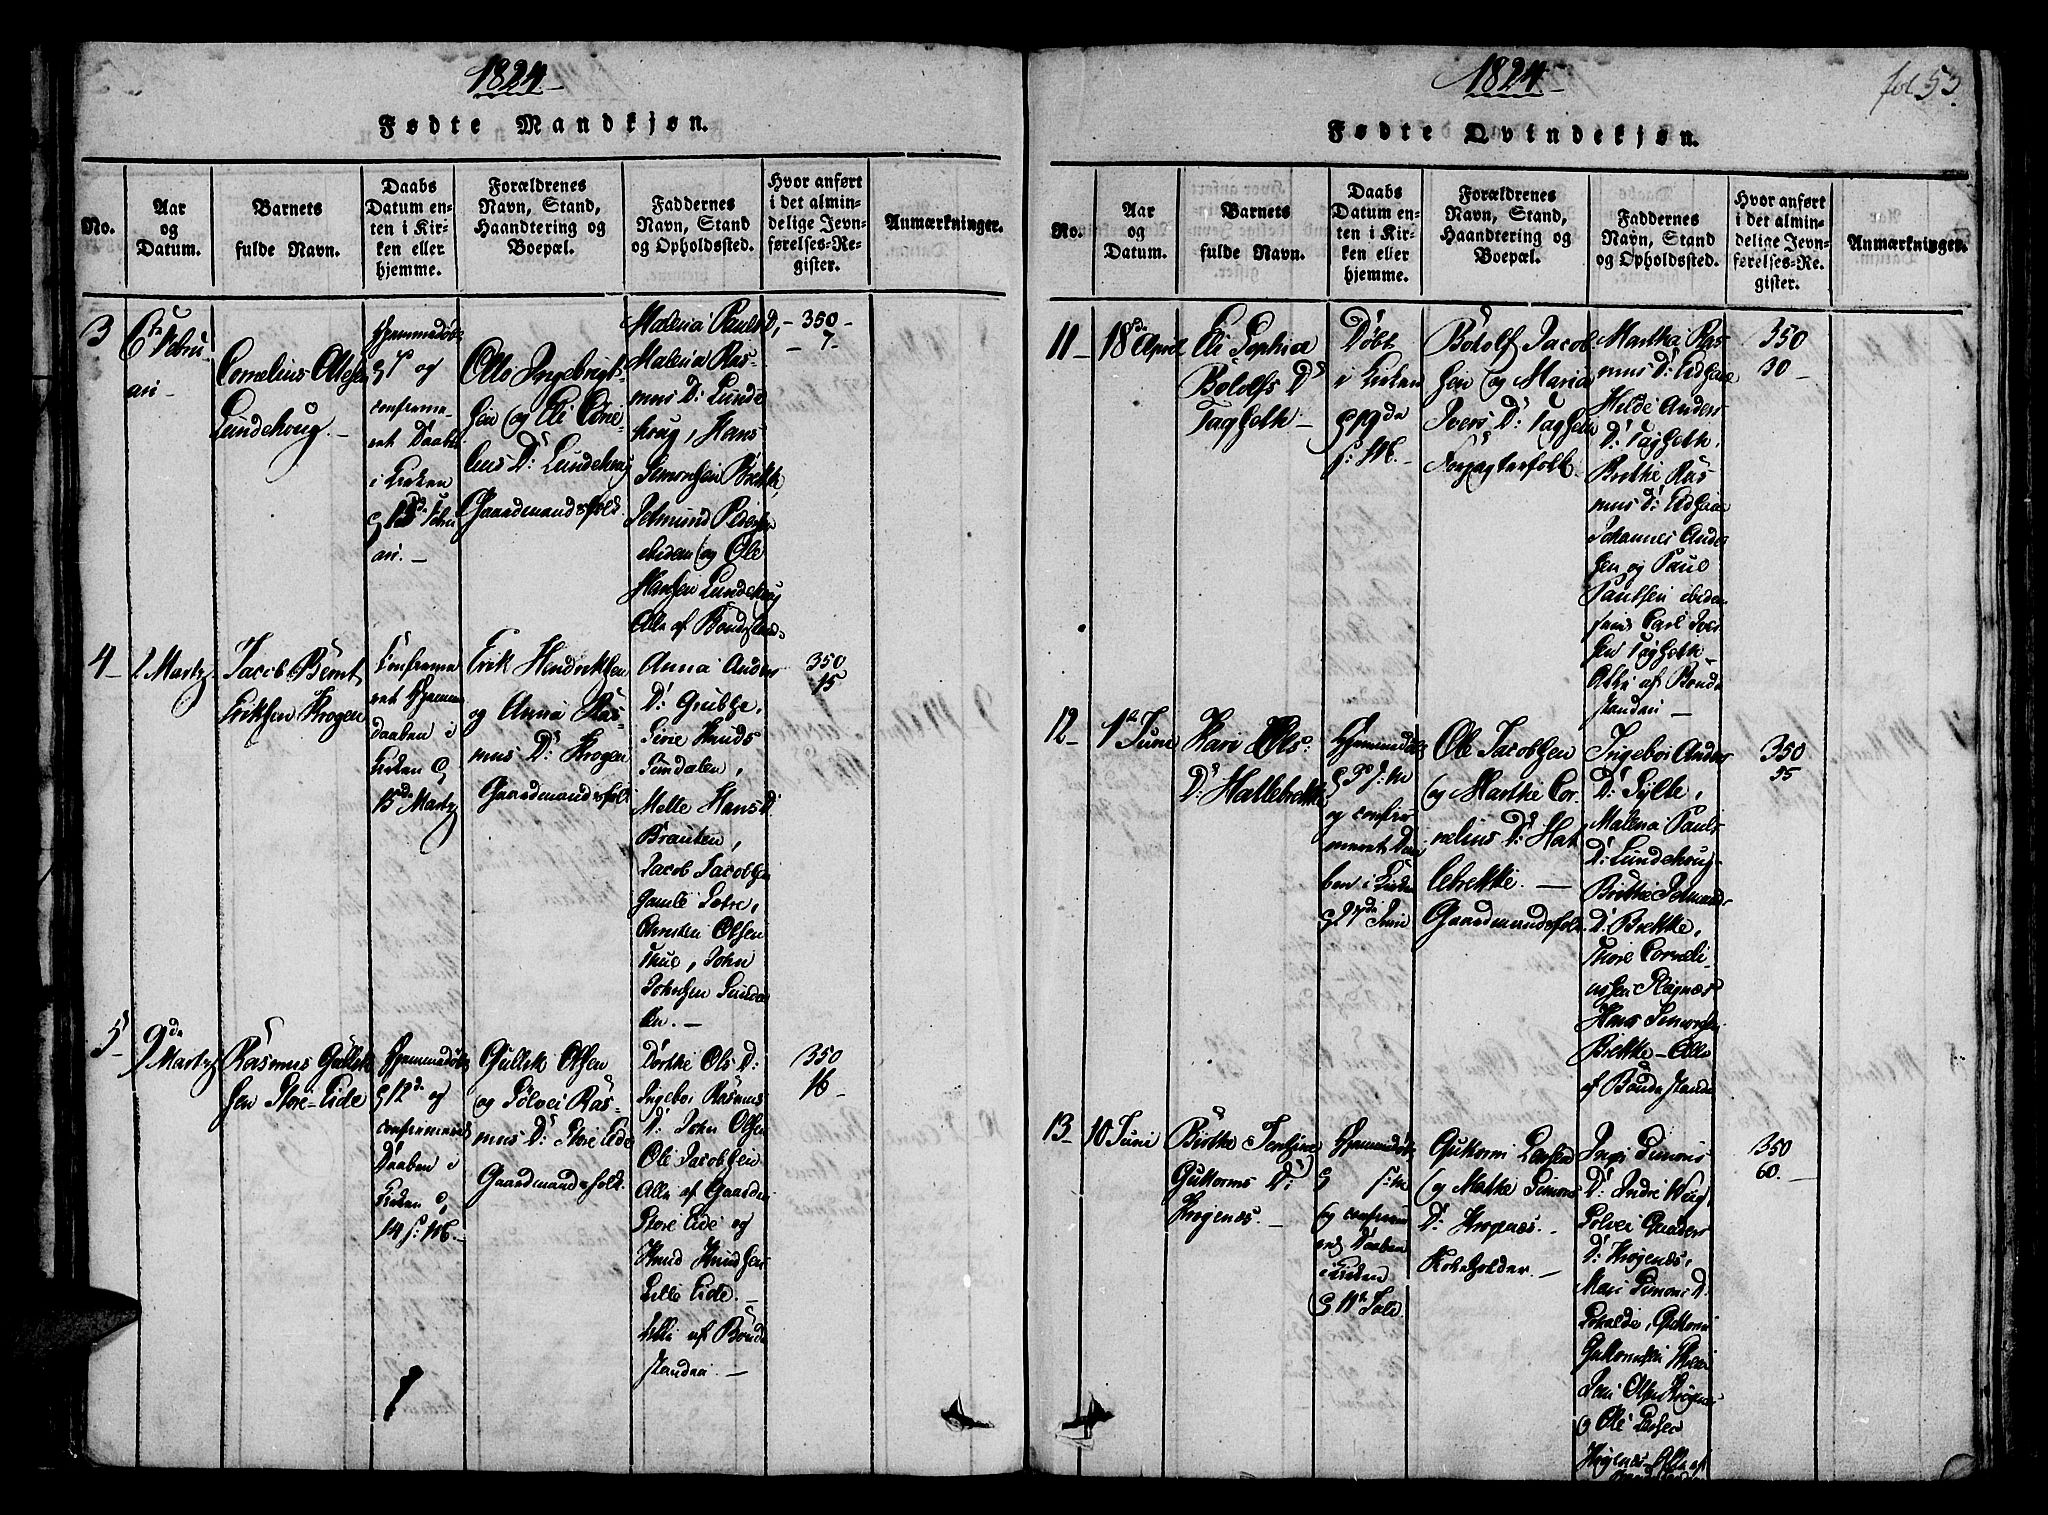 1824
Fødte Mandkjøn.
No.
Aar
og
Datum.
Barnets
fulde Navn.
Daabs
Datum en-
ten i Kir-
ken eller
hjemme.
Forældrenes
Navn, Stand,
Haandtering og
Boepæl.
Faddernes
Navn, Stand
og Opholdssted.
Hvor anført
i det almin-
delige Jevn-
førelses-Re-
gister.
Anmærkninger.
3
6te Febru-
ari
Cornelius Ottesen
Lundehoug.
Hjemmedøbt
og
confirme-
ret Daaben
i Kirken
15de Febru
ari.
Otto Ingebrigt-
sen og Eli Corne-
lius D: Lundehoug
Gaardmandsfolk.
Malena Pauls D,
Malena Ras-
mus D: Lunde
houg, Hans
Simonsen Brekke,
Iolmund Peders
ibidem og Ole
Hansen Lundehoug
Alle af Bondestand.
350
7
4
2 Martz
Jacob Bernt
Eriksen Krogen
Confirme
ret Hjemme
daaben i
Kirken
15de Martz
Erik Hendriksen
og Anna Ras-
mus D: Krogen
Gaardmandsfolk
Anna Anders
D: Grubse,
Sirie Knuds
Sundalen,
Mette Hans D:
Brauten,
Jacob Jacobsen
Gamle Sætre,
Christen Olsen
Thue, John
Johnsen Sunda
len.
350
15
5
9de
Martz
Rasmus Gullik
sen Store-Eide
Hjemmedøbt
12de og
confirmeret
Daaben i
Kirken
14 s: M.
Gullik Olsen
og Sølvei Ras-
mus D: Store Eide
Gaardmandsfolk.
Dorthe Ols D:
Ingebor Rasmus
D: John Olsen
Ole Jacobsen
Alle af Gaarden
Store Eide og
Knud Knudsen
Lille Eide.
Alle af Bonde
standen.
350
16
1824
fol 53.
Fødte Qvindekjøn.
No.
Aar
og
Datum.
Barnets
fulde Navn.
Daabs
Datum en-
ten i Kir-
ken eller
hjemme.
Forældrenes
Navn, Stand,
Haandtering og
Boepæl.
Faddernes
Navn, Stand
og Opholdssted.
Hvor anført
i det almin-
delige Jevn-
førelses-Re
gister.
Anmærkninger.
11
18de April
Eli Sophia
Bolofs D:
Tagseth
Døbt
i Kirken
19da
s: M.
Bololf Jacob
sen og Maria
Ivers D: Tagseth
Forpagterfolk.
Martha Ras
mus D: Eidsem
Hilde Anders
D: Tagseth,
Brithe Ras
mus D: Eidsem
Johannes Ander
sen og Paul
Paulsen ibidem
samt Carl Iver
sen Tagseth
Alle af Bonde
standen
350
30
12
1te Juni
Kari Ols
D: Hallebrekke
Hjemmedøbt
s: M
og confir
meret Daa
ben i Kirken
27de Juni
Ole Jacobsen
og Marthe Cor-
nelius D: Hal
lebrekke.
Gaardmandsfolk
Ingebor Anders
D: Sylte,
Malena Pauls
D: Lundehoug
Brithe Iolmunds
D: Brekke,
Thore Corneli-
ussen Regnæs
Hans Simonsen
Brekke - Alle
af Bondestanden
350
55
13
10 Juni
Birthe
Guttorms D:
Krogenæs.
Hjemmedøbt
s: M
og confirme
ret Daaben
i Kirken
11te Juli
Guttorm Larsen
og Mathe Simons
D: Krogenæs.
Inger Simons
D: Indre Waag,
Solvei Anders
D: Krogenæs,
Mari Simons D:
Guttorm
Guttormsen
Jens Olsen Krogenæs
og Ole Larsen
Krogenæs - Alle af
350
60.